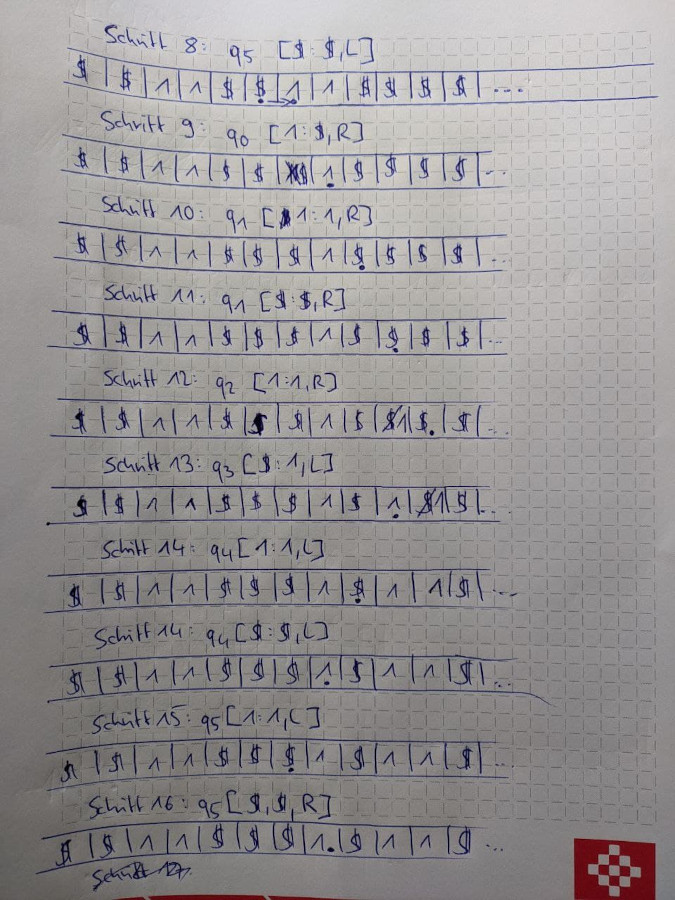 Schritt 8: q5 [$ : $, L]
$ | $ | 1 | 1 | $ | $ | 1 | 1 | $ | $ | $ | $ | ...
Schritt 9: q0 [1 : $, R]
$ | $ | 1 | 1 | $ | $ | $ | 1 | $ | $ | $ | $ | ...
Schritt 10: q1 [1 : 1, R]
$ | $ | 1 | 1 | $ | $ | $ | 1 | $ | $ | $ | $ | ...
Schritt 11: q1 [$ : $, R]
$ | $ | 1 | 1 | $ | $ | $ | 1 | $ | $ | $ | $ | ...
Schritt 12: q2 [1 : 1, R]
$ | $ | 1 | 1 | $ | $ | $ | 1 | $ | $1 | $ | $ | ...
Schritt 13: q3 [$ : 1, L]
$ | $ | 1 | 1 | $ | $ | $ | 1 | $ | 1 | $1 | $ | ...
Schritt 14: q4 [1 : 1, L]
$ | $ | 1 | 1 | $ | $ | $ | 1 | $ | 1 | 1 | $ | ...
Schritt 14: q4 [$ : $, L]
$ | $ | 1 | 1 | $ | $ | $ | 1 | $ | 1 | 1 | $ | ...
Schritt 15: q5 [1 : 1, L]
$ | $ | 1 | 1 | $ | $ | $ | 1 | $ | 1 | 1 | $ | ...
Schritt 16: q5 [$, $, R]
$ | $ | 1 | 1 | $ | $ | $ | 1 | $ | 1 | 1 | $ ...
Schritt 17: